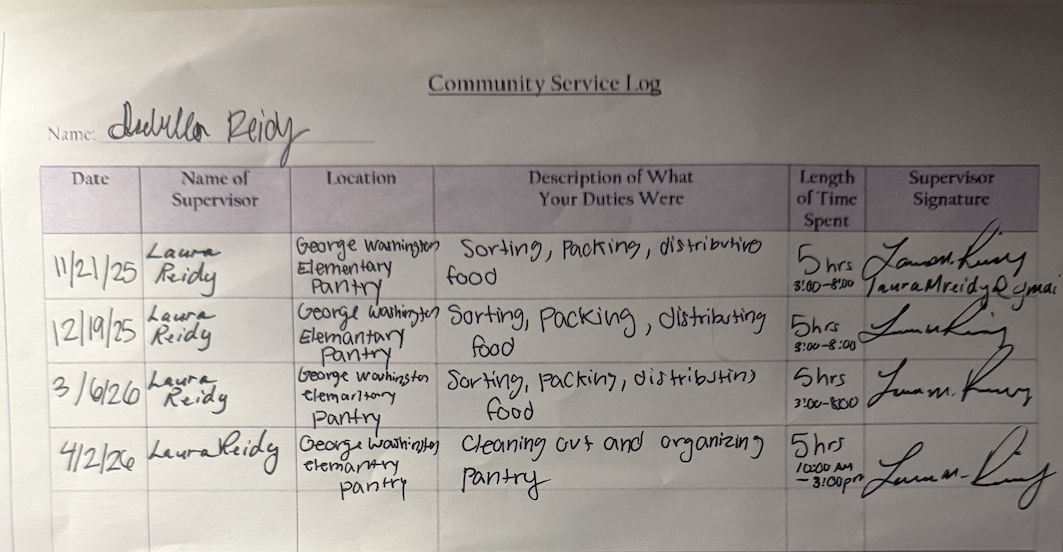 Community Service Log
Name: Reidy
Date
Name of
Supervisor
Location
Description of What
Your Duties Were
Length
of Time
Spent
Supervisor
Signature
11/21/25
Laura
Reidy
George Washington
Elementary
Pantry
Sorting, Packing, distributive
food
5 hrs
3:00-8:00
lauraMreidy@gmai
12/19/25
Laura
Reidy
George Washington
Elemantary
Pantry
Sorting, Packing, distributing
food
5hrs
3:00-8:00
3/6/26
Laura
Reidy
George Washington
Pantry
Sorting, packing, distributing
food
5hrs
3:00-8:00
4/2/26
Laura Reidy
George Washington
elemantry
pantry
Cleaning out and organizing
Pantry
5hrs
10:00 AM
-3:00pm